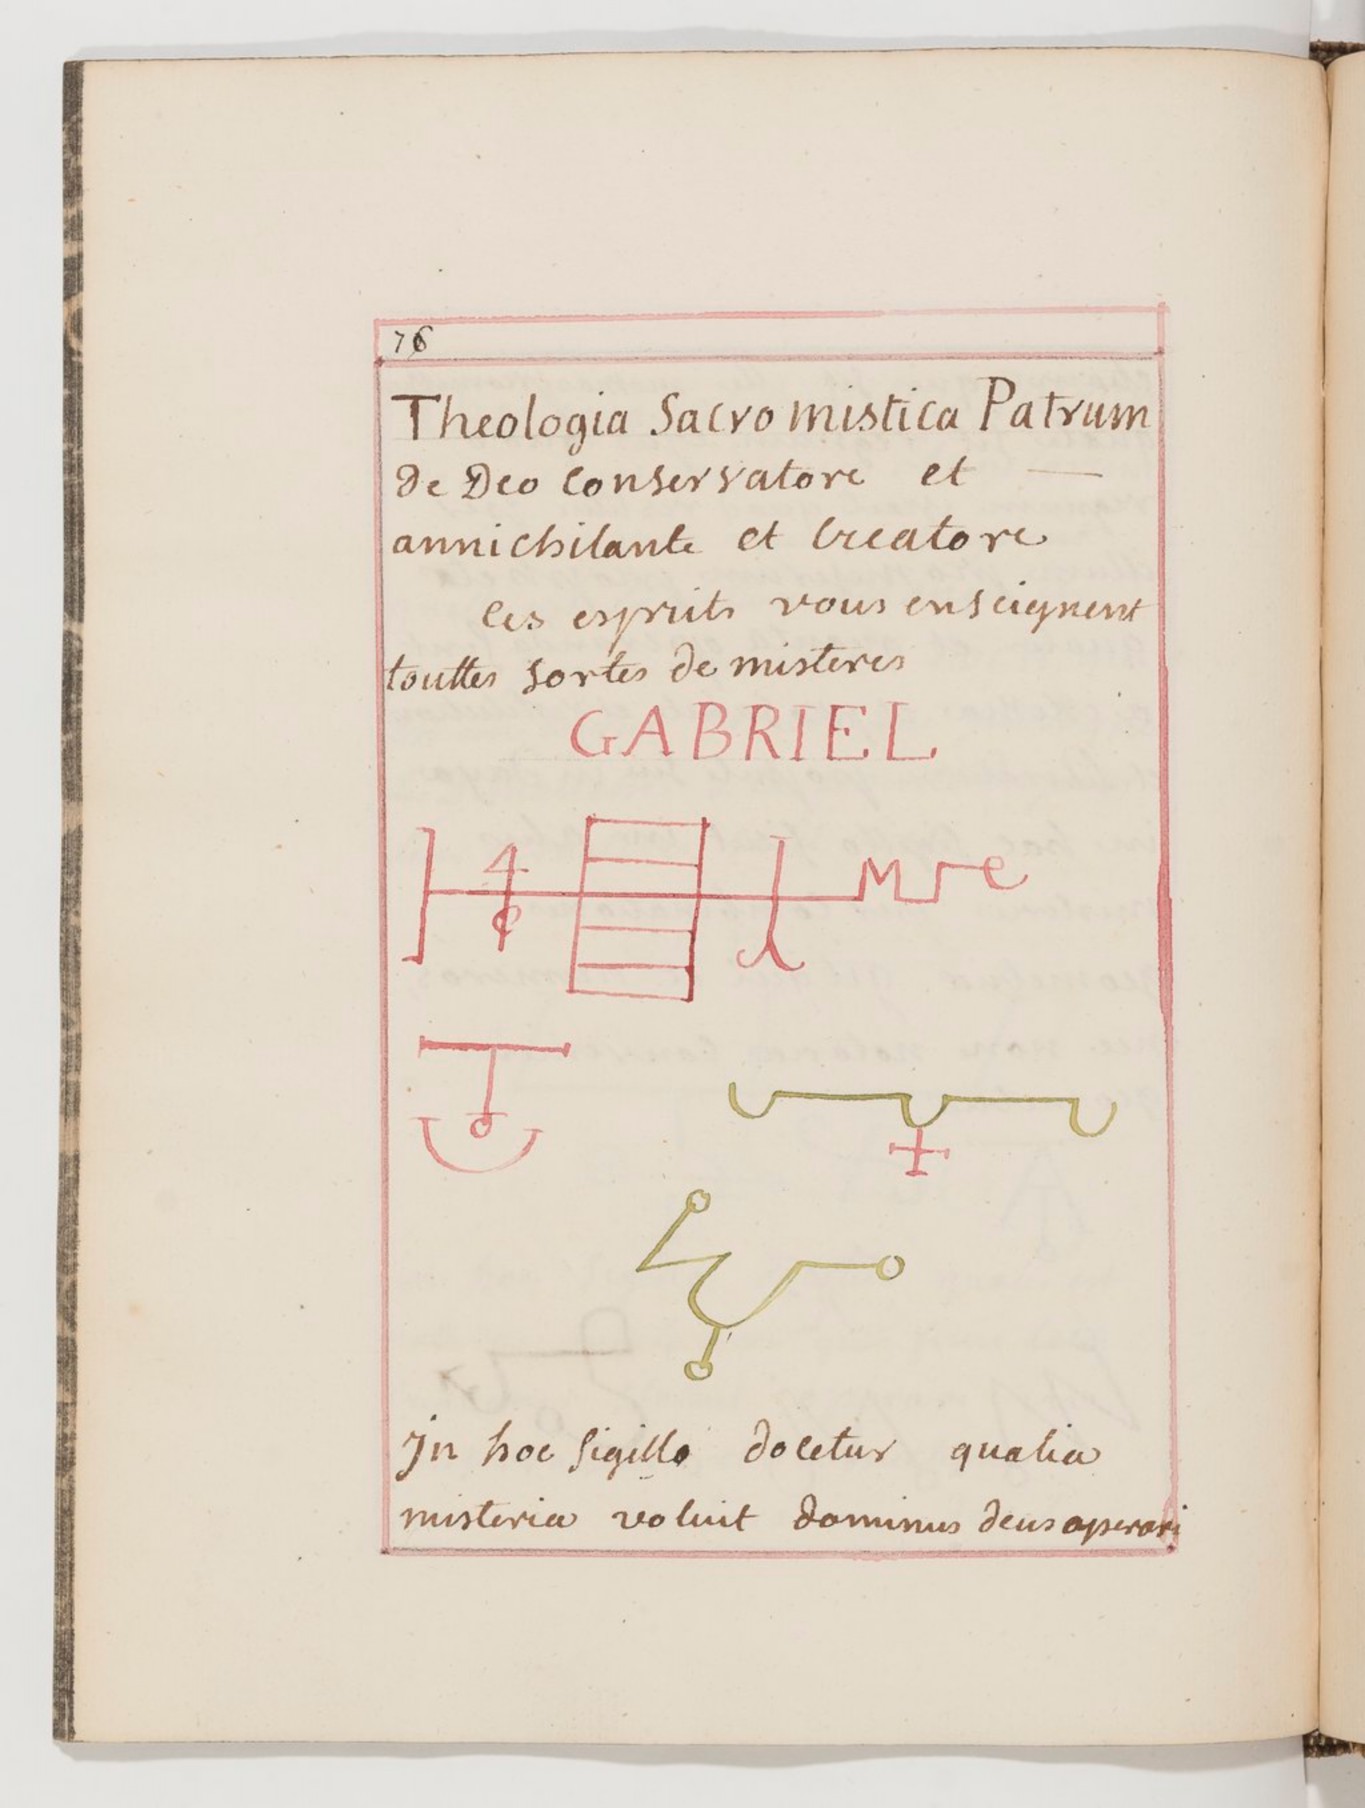 76
Theologia Sacro mistica Patrum
de Deo Conservatore et —
annichilante et Creatore
Ces esprits vous enseignent
touttes sortes de misteres
GABRIEL
In hoc Sigillo docetur qualia
misteria voluit dominus deus operari